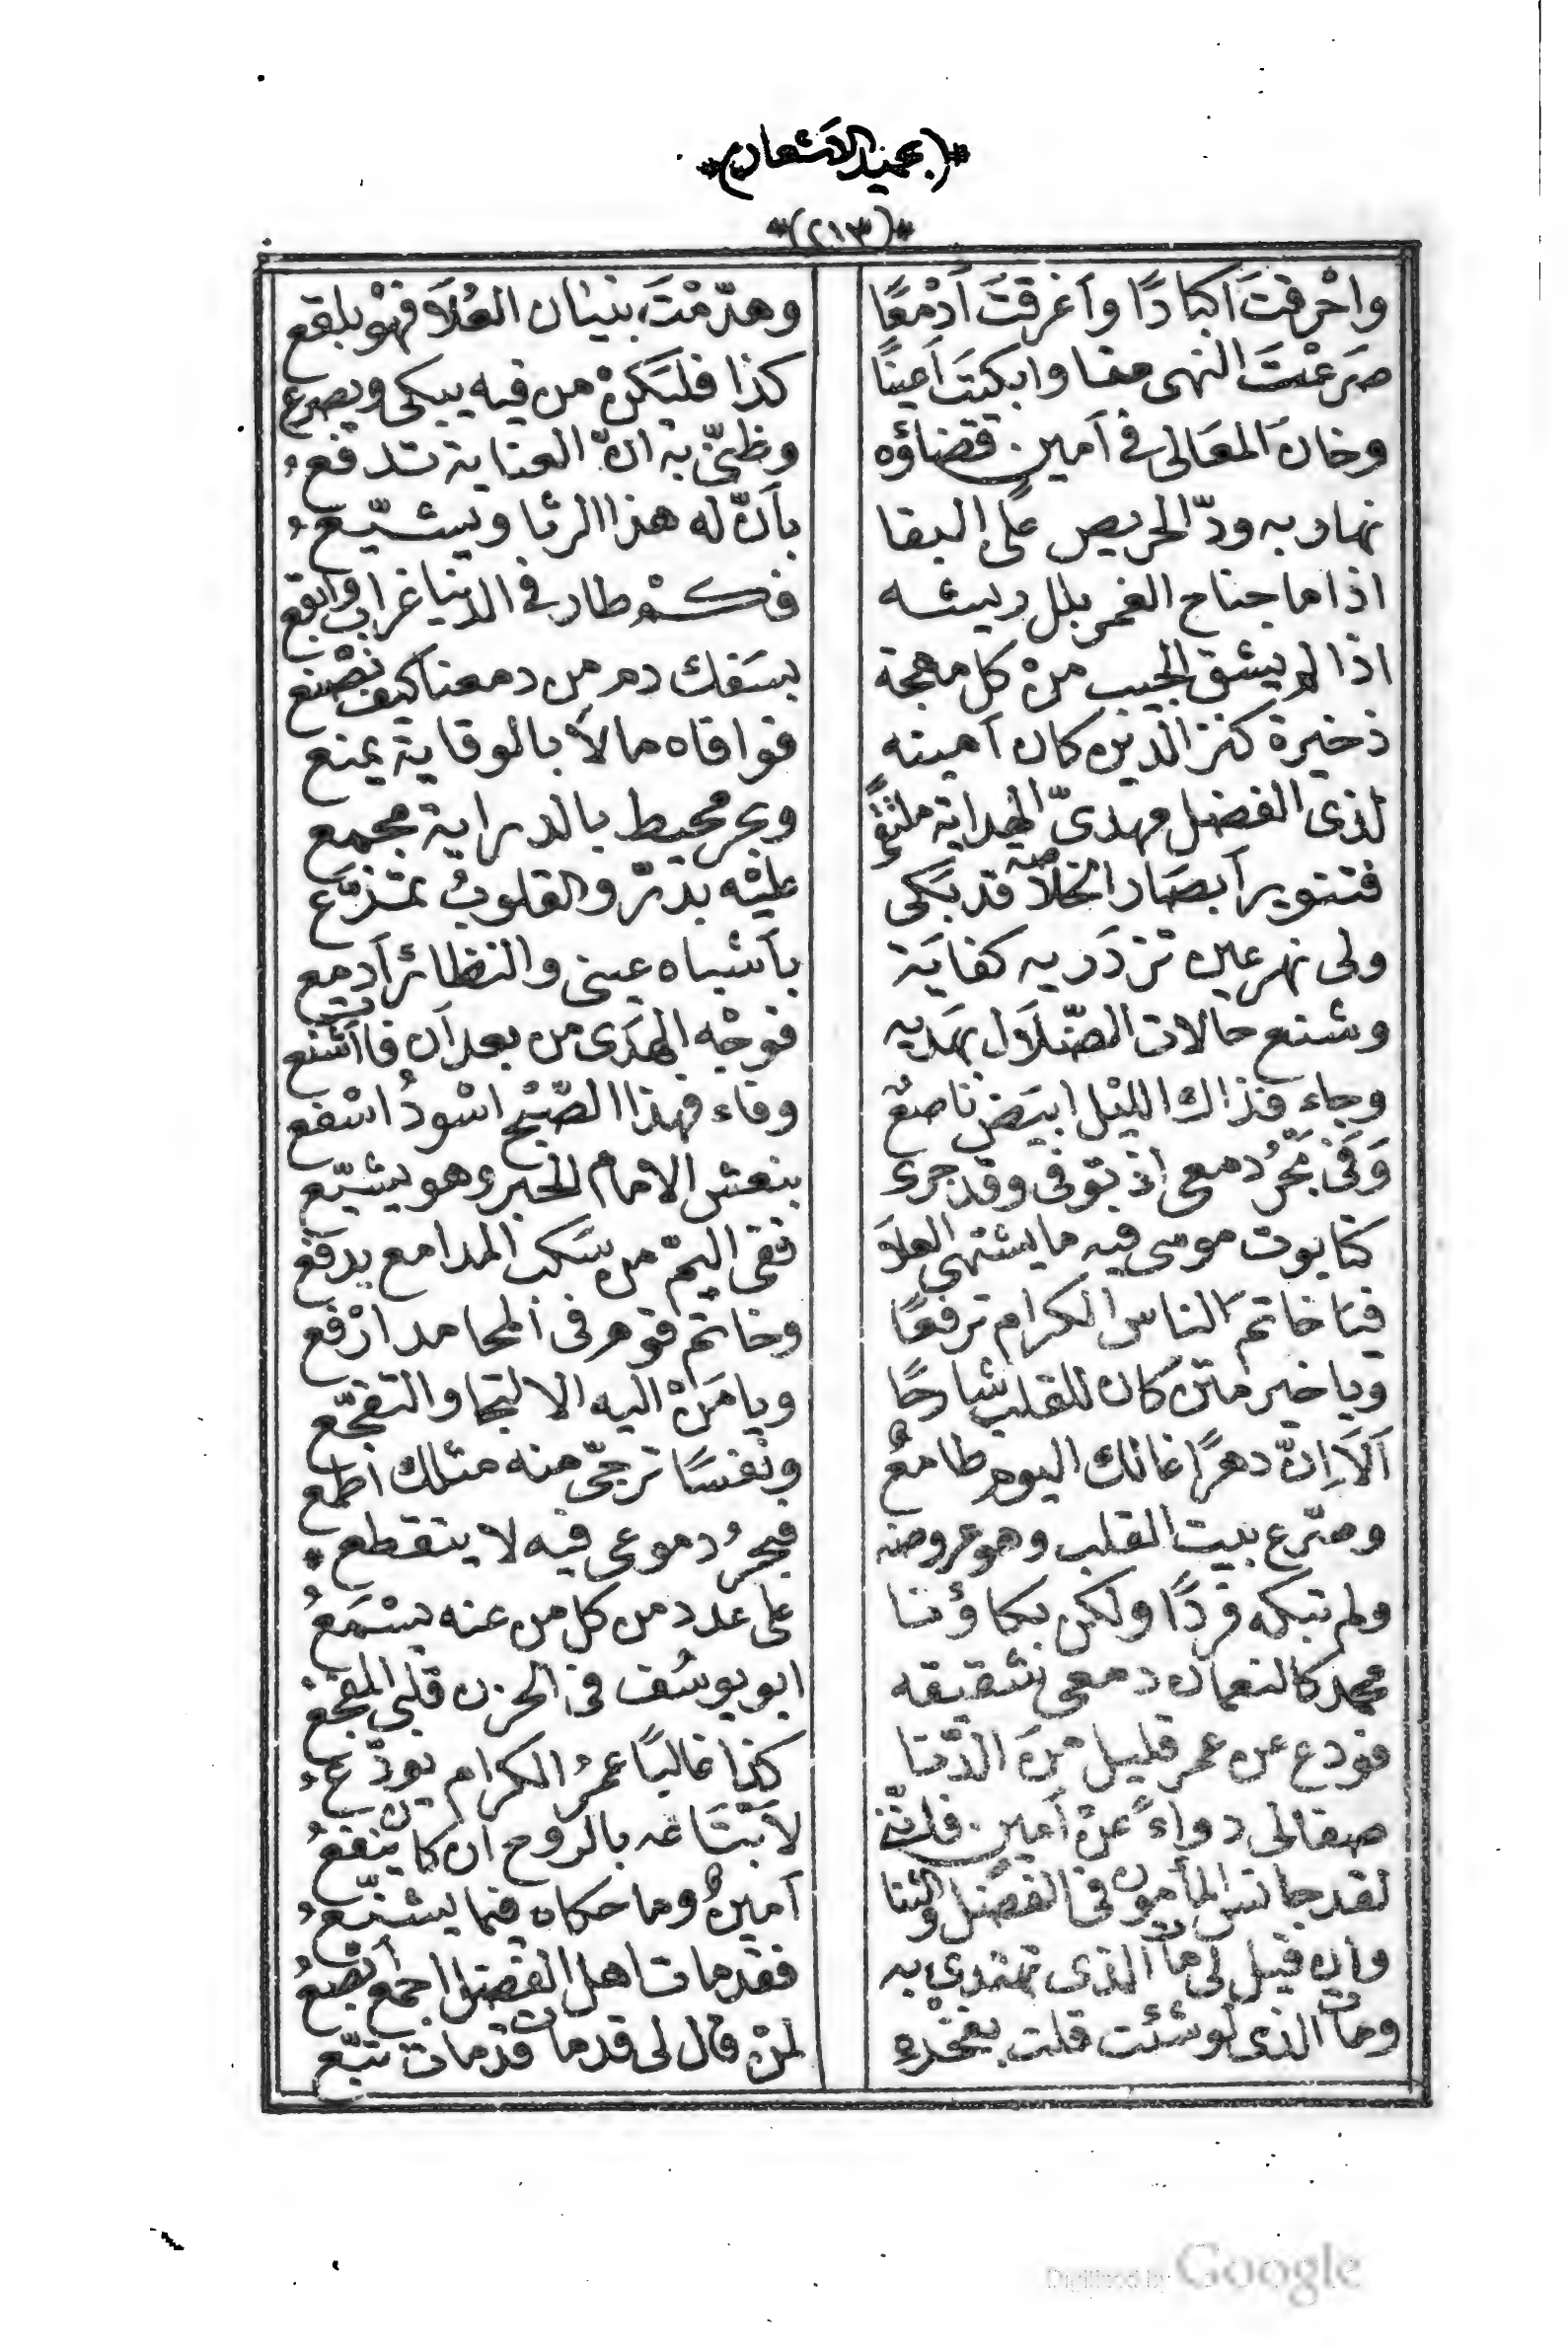 *(بحميد الاشعار)*
*(٢١٣)*
واحْرقتَ اكبادًا وأغرقتَ أدْمعًا وهدّمْتَ بنيان العُلاَ فهْو بلقع
صَرَعْتَ النهى منا وابكيتَ أعينًا كذا فليَكنْ من فيه يبكى ويصرع
وخانَ المعَالى فى أمين قضاؤه وظنّى به انّ العناية تدفعُ
نهار به ودّ الحريص على البقا بأنّ له هذا الرثا ويشيّعُ
اذا ما جناح الغمر بلل ريشه فكمْ طار فى الدنيا غراب وابقع
اذا لم يشق الجيب منْ كل مهجة بسَفك دم من دمعنا كيف نصْنع
ذخيرة كنز الدين كان أمينه فوافاه مالاً بالوقاية يمنع
لذى الفضل مهدىّ الهداية ملتقًى وبحر محيط بالدراية مجمع
فتنوير أبصار الخلاصة قد بَكى عليْه بدُرّ والقلوبُ تمزّع
ولى نهر عين تزدَريه كفايَة بأشباه عينى والنظائر أدمع
وشنع حالات الضّلاَل بهَديه فوجْه الهدَى من بعد أن فات أشنع
وجاء فذاك الليْل ابيَض ناصعٌ وفاء فهذا الصّبْح اسْودُ اسْفع
وَفَى بَحْرُ دمعى اذ توفى وقد جرى بنعش الامام الحبر وهو يشيّع
كتابوت موسى فيه ما يشتهى العلاَ ففى اليمّ من سَكب المدامع يدفع
فيَا خاتم الناس الكرام ترفعًا وخاتم قوم فى المحامد ارْفع
ويا خير متن كان للقلب شارحًا ويا مَنْ اليه الالتجا والتفجّع
ألاَ إنّ دهرًا غالك اليوم طامعٌ ونفسًا ترجّى منه مثلك اطمع
وصّرع بيت القلب وهو عروضه فبحرُ دموعى فيه لا يتقطع *
ولم تبكه فردًا ولكن بكاؤنا على عدد من كل من عنه يسْمَعُ
محمد كالنعمان دمعى شقيقه ابو يوسُف فى الحزن قلبى المفجع
فودع عن عمر قليل منَ الدّنا كذا غالبًا عمرُ الكرام يودّعُ
صفا لى دواءً عنْ أمين فانّنى لأبْتَاعه بالروح ان كان ينفعُ
لقد جانس المأمون فى الفضل والثنا أمينٌ وما حكاه فيما يشنّعُ
وان قيل لى مات الذى تهتدى به فقد مات اهل الفضل اجمع أبْصعُ
ومات الذى لو شئت قلت بفقدهِ لمنْ قال لى قد مات قد مات تبّع